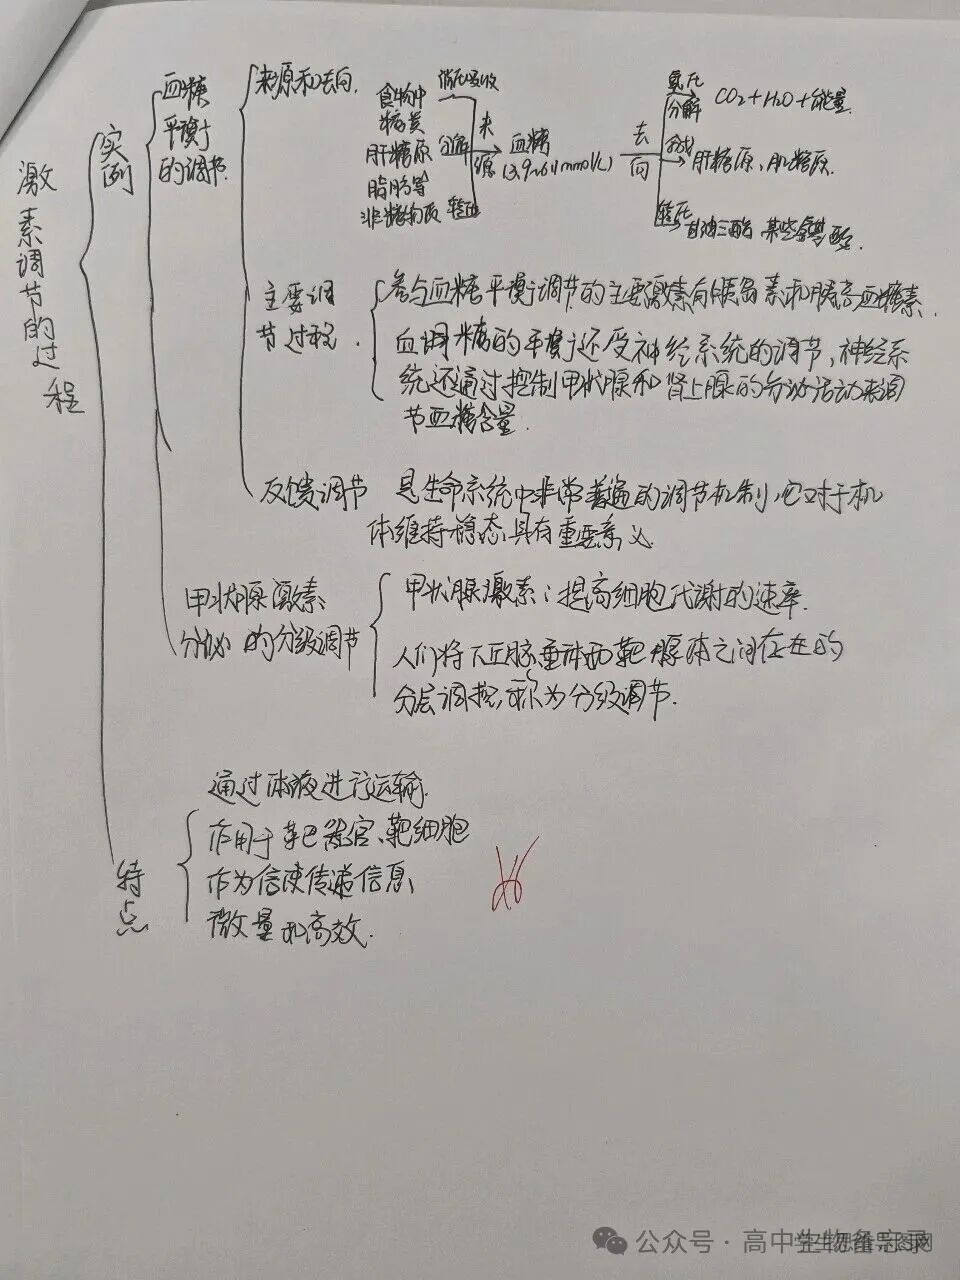 激素调节的过程
实例
血糖平衡的调节
来源和去向
食物中糖类
消化吸收
肝糖原
分解
脂肪等非糖物质
转化
来源
血糖
(3.9~6.1mmol/L)
去向
氧化分解
CO2+H2O+能量
合成
肝糖原、肌糖原
转化
甘油三酯 某些氨基酸
主要调节过程
参与血糖平衡调节的主要激素有胰岛素和胰高血糖素.
血调糖的平衡还受神经系统的调节,神经系
统还通过控制甲状腺和肾上腺的分泌活动来调
节血糖含量.
反馈调节
是生命系统中非常普遍的调节机制,它对于机
体维持稳态具有重要意义
甲状腺激素
分泌的分级调节
甲状腺激素:提高细胞代谢的速率.
人们将下丘脑垂体和靶腺体之间存在的
分层调控,称为分级调节.
特点
通过体液进行运输.
作用于靶器官、靶细胞
作为信使传递信息、
微量和高效.
公众号·高中生物备忘录